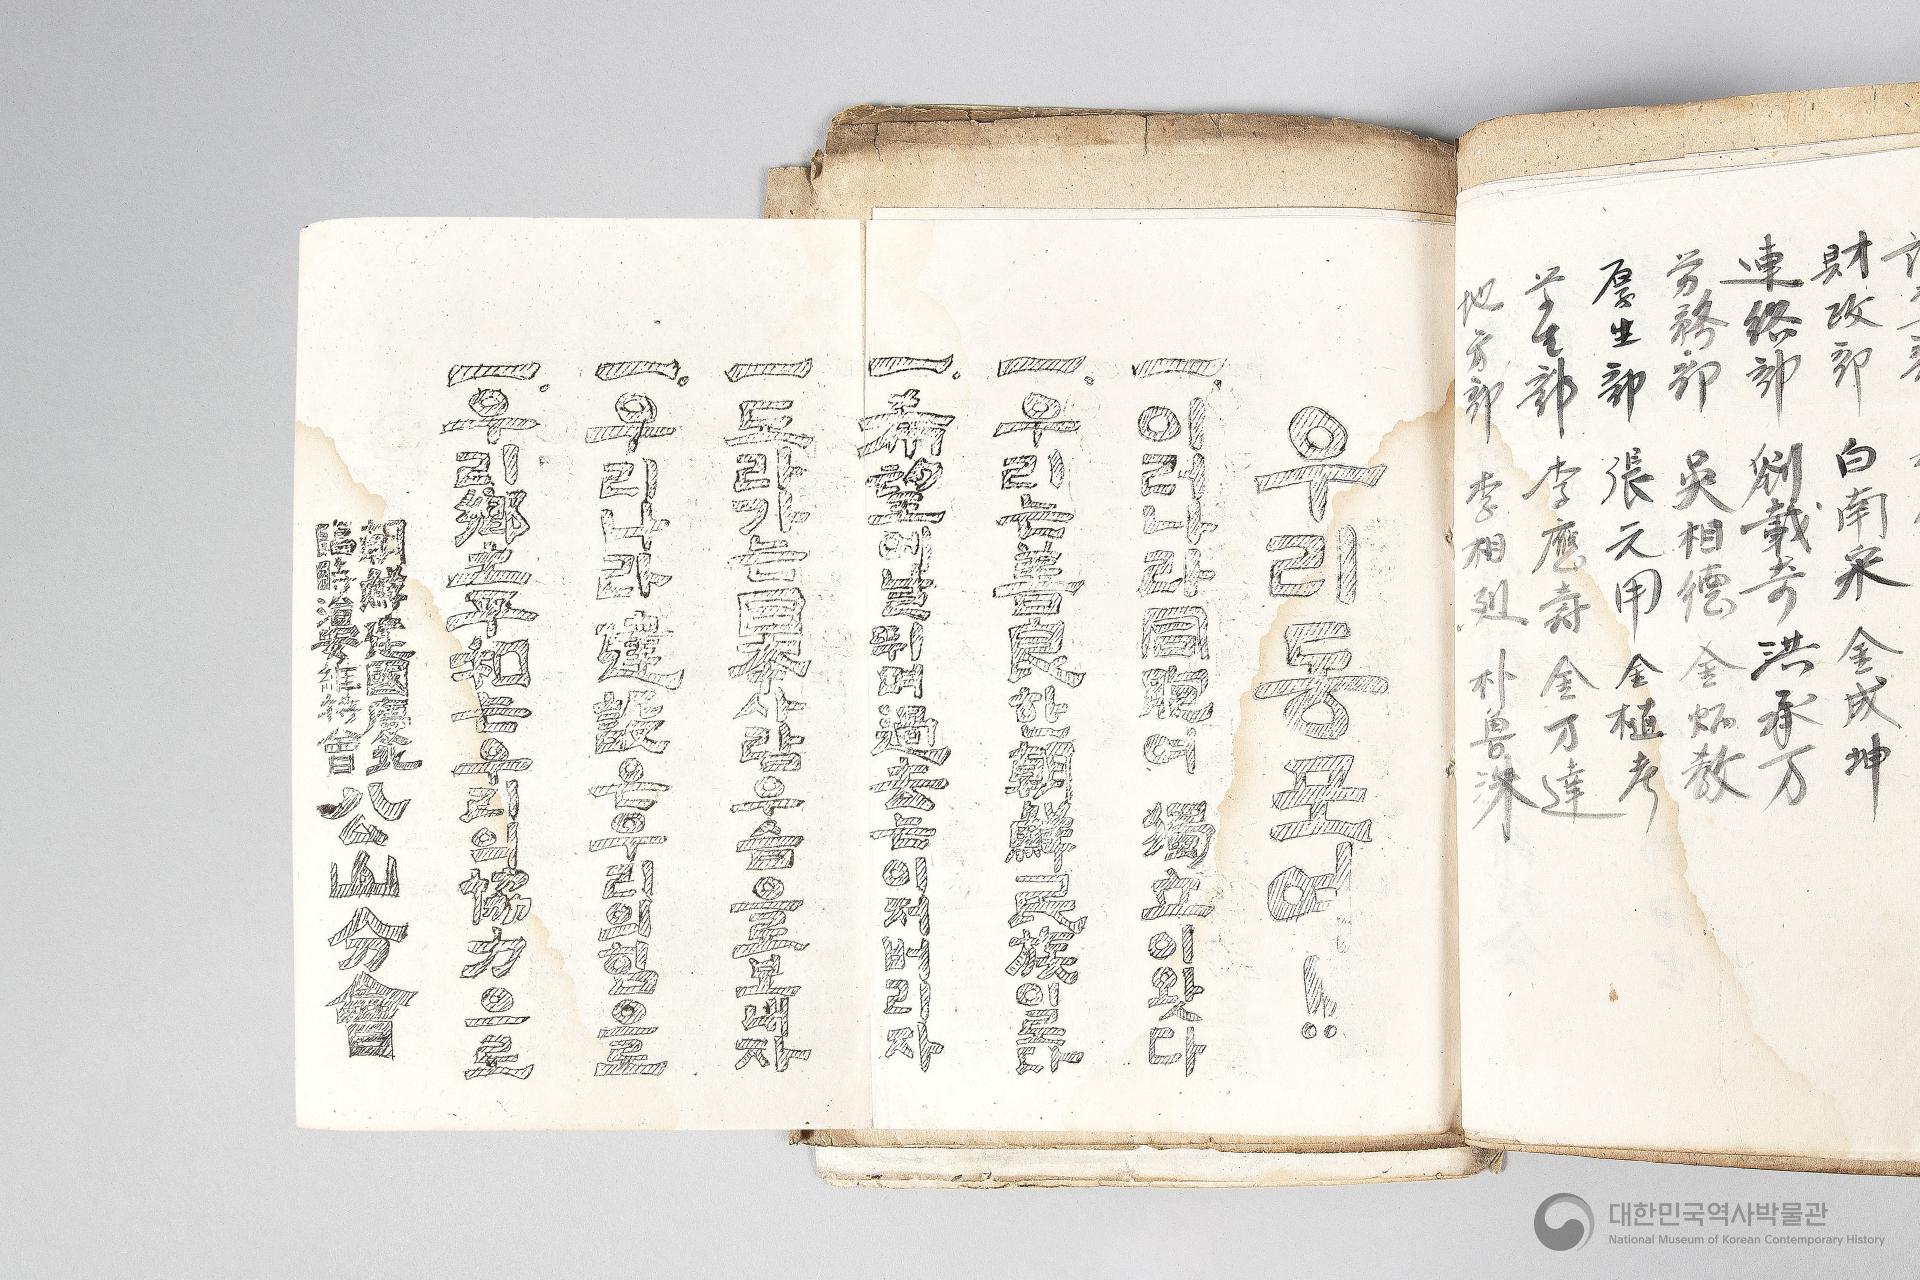 財政部 白南采 金成坤
連絡部 劉載奇 洪承万
労務部 吳相德 金炳敎
厚生部 張元用 金植考
李應壽 金万達
地方部 李相烈 朴景洙
우리동포여!!
一. 이러나라同胞여 獨立이왓다
一. 우리는善良한朝鮮民族인존다
一. 希望에날뛰며過去는이저버리자
一 도라가는日本사람우슴으로보내자
一. 우리나라建設은우리의힘으로
一. 우리鄕土平和는우리의協力으로
朝鮮建國慶北
臨時治安維持會
八公山分會
대한민국역사박물관
National Museum of Korean Contemporary History